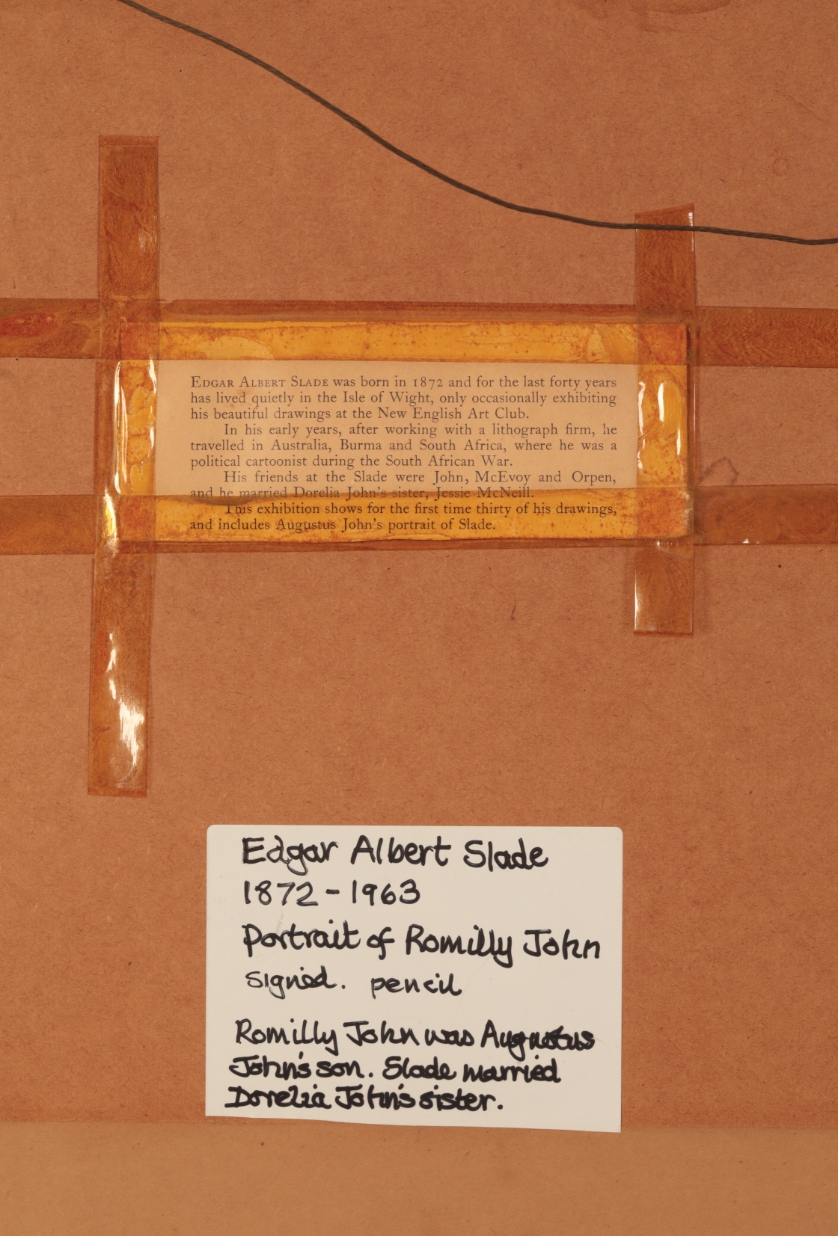 EDGAR ALBERT SLADE was born in 1872 and for the last forty years
has lived quietly in the Isle of Wight, only occasionally exhibiting
his beautiful drawings at the New English Art Club.
In his early years, after working with a lithograph firm, he
travelled in Australia, Burma and South Africa, where he was a
political cartoonist during the South African War.
His friends at the Slade were John, McEvoy and Orpen,
and he married Dorelia John's sister, Jessie McNeill.
This exhibition shows for the first time thirty of his drawings,
and includes Augustus John's portrait of Slade.
Edgar Albert Slade
1872-1963
Portrait of Romilly John
signed. pencil
Romilly John was Augustus
John's son. Slade married
Dorelia John's sister.